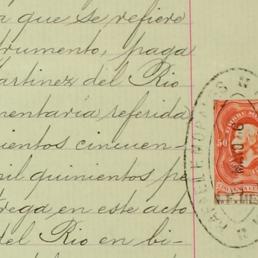 a que se refiere
trumento, paga
artinez del Rio
mentaría referida
ientos cincuen-
mil quinientos pe
trega en este acto
del Rio en bi-
50